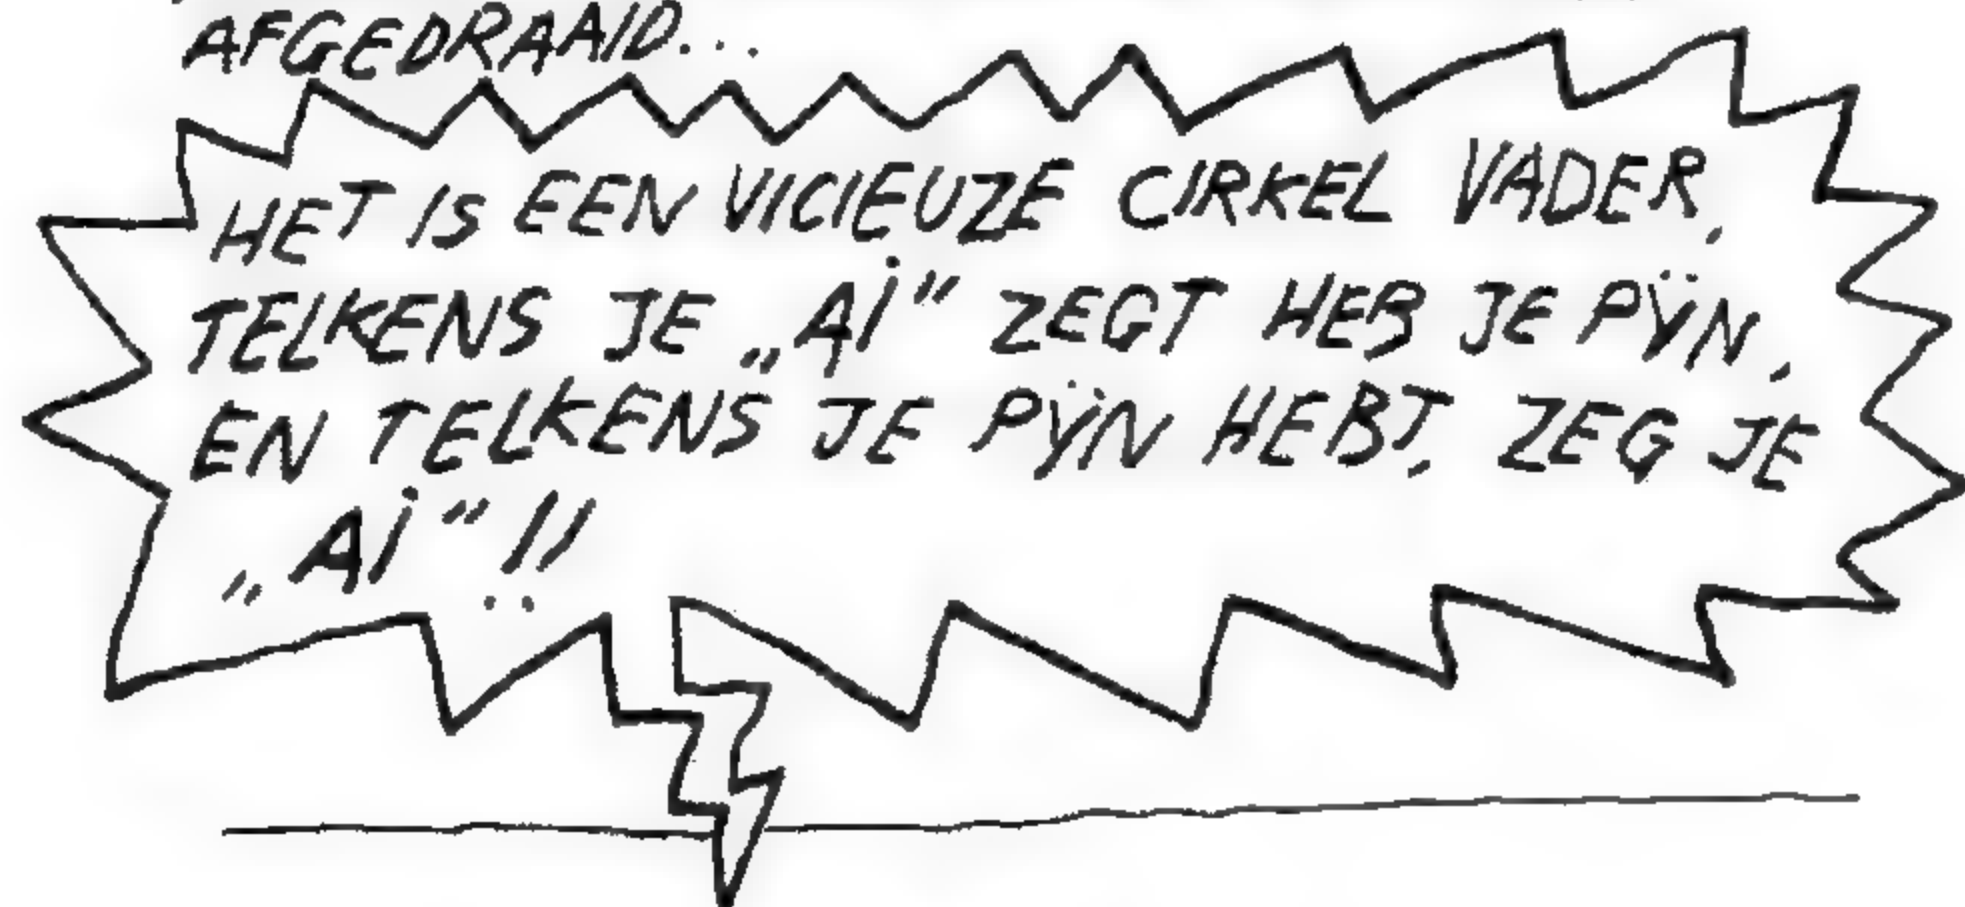 AFGEDRAAID...
HET IS EEN VICIEUZE CIRKEL VADER,
TELKENS JE „AI" ZEGT HEB JE PŸN,
EN TELKENS JE PŸN HEBT, ZEG JE
„AI" !!